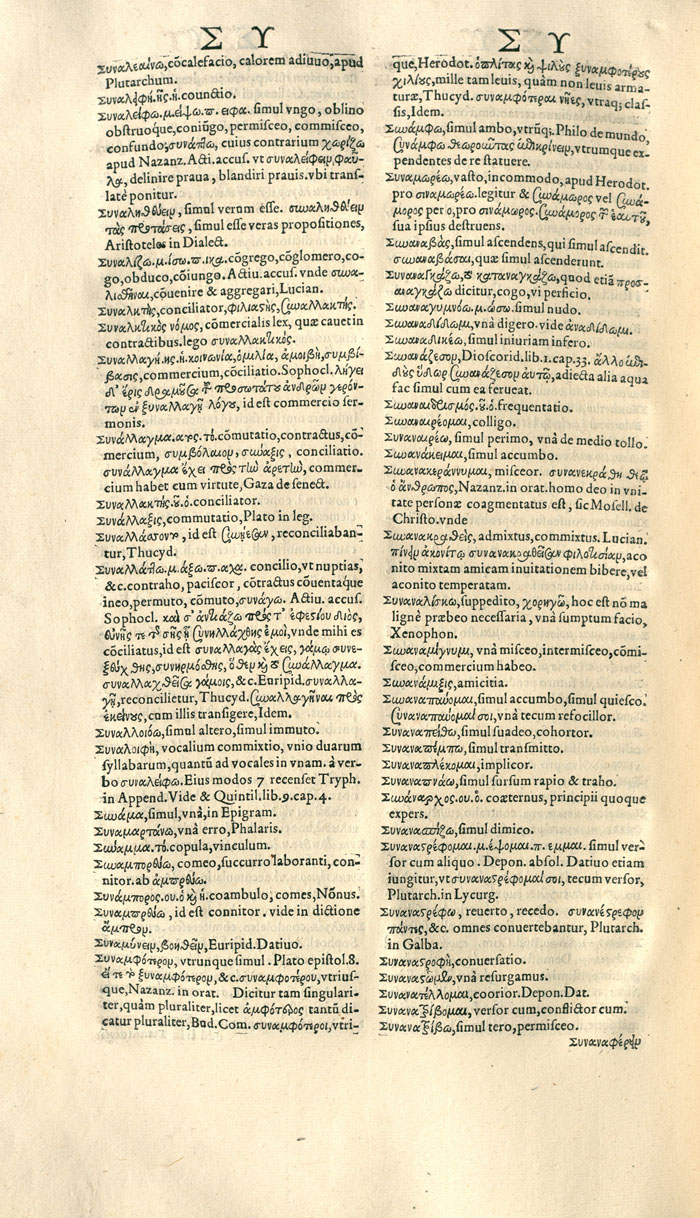 Σ Υ
Συναλεαίνω, cōcalefacio, calorem adiuuo, apud
Plutarchum.
Συναλειφή. ῆς. ἡ. counctio.
Συναλείφω. μ. είψω. π. ειφα. simul vngo, oblino
obstruoque, coniūgo, permisceo, commisceo,
confundo, συνάπτω, cuius contrarium χωρίζω
apud Nazanz. Acti. accus. vt συναλείφειν φαῦ-
λα, delinire praua, blandiri prauis. vbi trans-
latè ponitur.
Συναληθεύειν, simul verum esse. συναληθεύειν
τὰς προτάσεις, simul esse veras propositiones,
Aristoteles in Dialect.
Συναλίζω. μ. ίσω. π. ικα. cōgrego, cōglomero, co-
go, obduco, cōiungo. Actiu. accus. vnde συνα-
λισθῆναι, cōuenire & aggregari, Lucian.
conciliator,
cōmercialis lex, quæ cauet in
contractibus. lego συναλλακτικός.
Συναλλαγή. ῆς. ἡ. κοινωνία, ὁμιλία, ἀμοιβὴ, συμβί-
βασις, commercium, cōciliatio. Sophocl. λήγει
id est commercio ser-
monis.
Συνάλλαγμα. ατος. τό. cōmutatio, contractus, cō-
mercium, συμβόλαιον, σύναξις, conciliatio.
συνάλλαγμα ἔχει πρὸς τὴν ἀρετὴν, commer-
cium habet cum virtute, Gaza de senect.
Συναλλακτής. οῦ. ὁ. conciliator.
Συνάλλαξις, commutatio, Plato in leg.
id est reconciliaban-
tur, Thucyd.
Συναλλάττω. μ. άξω. π. αχα. concilio, vt nuptias,
&c. contraho, paciscor, cōtractus cōuentaq́ue
ineo, permuto, cōmuto, συνάγω. Actiu. accus.
Sophocl.
vnde mihi es
cōciliatus, id est συναλλαγὰς ἔχεις, γάμῳ συνε-
ζεύχθης, συνηρμόσθης, ὅθεν καὶ τὸ συνάλλαγμα.
συναλλαχθεῖσα γάμοις, &c. Euripid. συναλλα-
γῇ, reconcilietur, Thucyd. συναλλαγῆναι πρὸς
ἐκείνους, cum illis transigere, Idem.
Συναλλοιόω, simul altero, simul immuto.
Συναλοιφὴ, vocalium commixtio, vnio duarum
syllabarum, quantū ad vocales in vnam. à ver-
bo συναλείφω. Eius modos 7 recenset Tryph.
in Append. Vide & Quintil. lib. 9. cap. 4.
Συνάμα, simul, vnà, in Epigram.
Συναμαρτάνω, vnà erro, Phalaris.
Σύναμμα. το. copula, vinculum.
Συναμπορεύω, comeo, succurro laboranti, con-
nitor. ab
Συνάμπορος. ου. ὁ καὶ ἡ. coambulo, comes, Nōnus.
id est connitor. vide in dictione
Συναμύνειν, βοηθεῖν, Euripid. Datiuo.
Συναμφότερον, vtrunque simul. Plato epistol. 8.
εἴτε τὸ ξυναμφότερον, &c. συναμφοτέρου, vtrius-
que, Nazanz. in orat. Dicitur tam singulari-
ter, quàm pluraliter, licet ἀμφότερος tantū di-
catur pluraliter, Bud. Com. συναμφότεροι, vtri-
Σ Υ
que, Herodot. ὁπλίτας καὶ ψιλοὺς ξυναμφοτέρους
χιλίους, mille tam leuis, quàm non leuis arma-
turæ, Thucyd. συναμφότεραι νῆες, vtraq; clas-
sis, Idem.
Συνάμφω, simul ambo, vtrūq;. Philo de mundo,
συνάμφω θεωροῦντας ἀποκρίνειν, vtrumque ex-
pendentes de re statuere.
Συναμωρέω, vasto, incommodo, apud Herodot.
pro σιναμωρέω. legitur & συνάμωρος vel συνά-
μορος per ο, pro σινάμωρος. συνάμορος ἑαυτοῦ,
sua ipsius destruens.
Συναναβὰς, simul ascendens, qui simul ascendit.
συναναβᾶσαι, quæ simul ascenderunt.
Συναναγκάζω, τὸ καταναγκάζω, quod etiā προσ-
αναγκάζω dicitur, cogo, vi perficio.
Συναναγυμνόω. μ. ώσω. simul nudo.
Συναναδίδωμι, vnà digero. vide ἀναδίδωμι.
Συναναδικέω, simul iniuriam infero.
Συνανάζεσον, Dioscorid. lib. 1. cap. 33.
συνανάζεσον αὐτῷ, adiecta alia aqua
fac simul cum ea ferueat.
frequentatio.
Συναναιρέομαι, colligo.
Συναναιρέω, simul perimo, vnà de medio tollo.
Συνανάκειμαι, simul accumbo.
Συνανακεράννυμαι, misceor. συνανεκράθη θεῷ
ὁ ἄνθρωπος, Nazanz. in orat. homo deo in vni-
tate personæ coagmentatus est, sic Mosell. de
Christo. vnde
Συνανακραθεὶς, admixtus, commixtus. Lucian.
πίνειν ἀκονίτῳ συνανακραθεῖσαν φιλοτησίαν, aco
nito mixtam amicam inuitationem bibere, vel
aconito temperatam.
Συναναλίσκω, suppedito, χορηγῶ, hoc est nō ma
lignè præbeo necessaria, vnà sumptum facio,
Xenophon.
Συναναμίγνυμι, vnà misceo, intermisceo, cōmi-
sceo, commercium habeo.
Συνανάμιξις, amicitia.
Συναναπαύομαι, simul accumbo, simul quiesco.
συναναπαύομαί σοι, vnà tecum refocillor.
Συναναπείθω, simul suadeo, cohortor.
Συναναπέμπω, simul transmitto.
Συναναπλέκομαι, implicor.
Συνανασπάω, simul sursum rapio & traho.
Συνάναρχος. ου. ὁ. coæternus, principii quoque
expers.
simul dimico.
Συναναστρέφομαι. μ. έψομαι. π. εμμαι. simul ver-
sor cum aliquo. Depon. absol. Datiuo etiam
iungitur, vt συναναστρέφομαί σοι, tecum versor,
Plutarch. in Lycurg.
Συναναστρέφω, reuerto, recedo. συνανέστρεφον
πάντες, &c. omnes conuertebantur, Plutarch.
in Galba.
Συναναστροφὴ, conuersatio.
vnà resurgamus.
Συνανατέλλομαι, coorior. Depon. Dat.
Συνανατρίβομαι, versor cum, conflictor cum.
Συνανατρίβω, simul tero, permisceo.
Συναναφέρειν